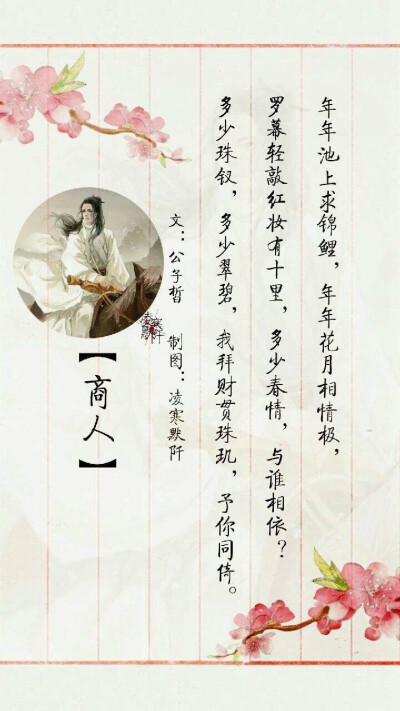 年年池上求锦鲤，年年花月相情极，
罗幕轻敲红妆有十里，多少春情，与谁相依？
多少珠钗，多少翠碧，我拜财贯珠玑，予你同倚。
文：公子皙 制图：凌寒默阡
凌寒默阡
【商人】